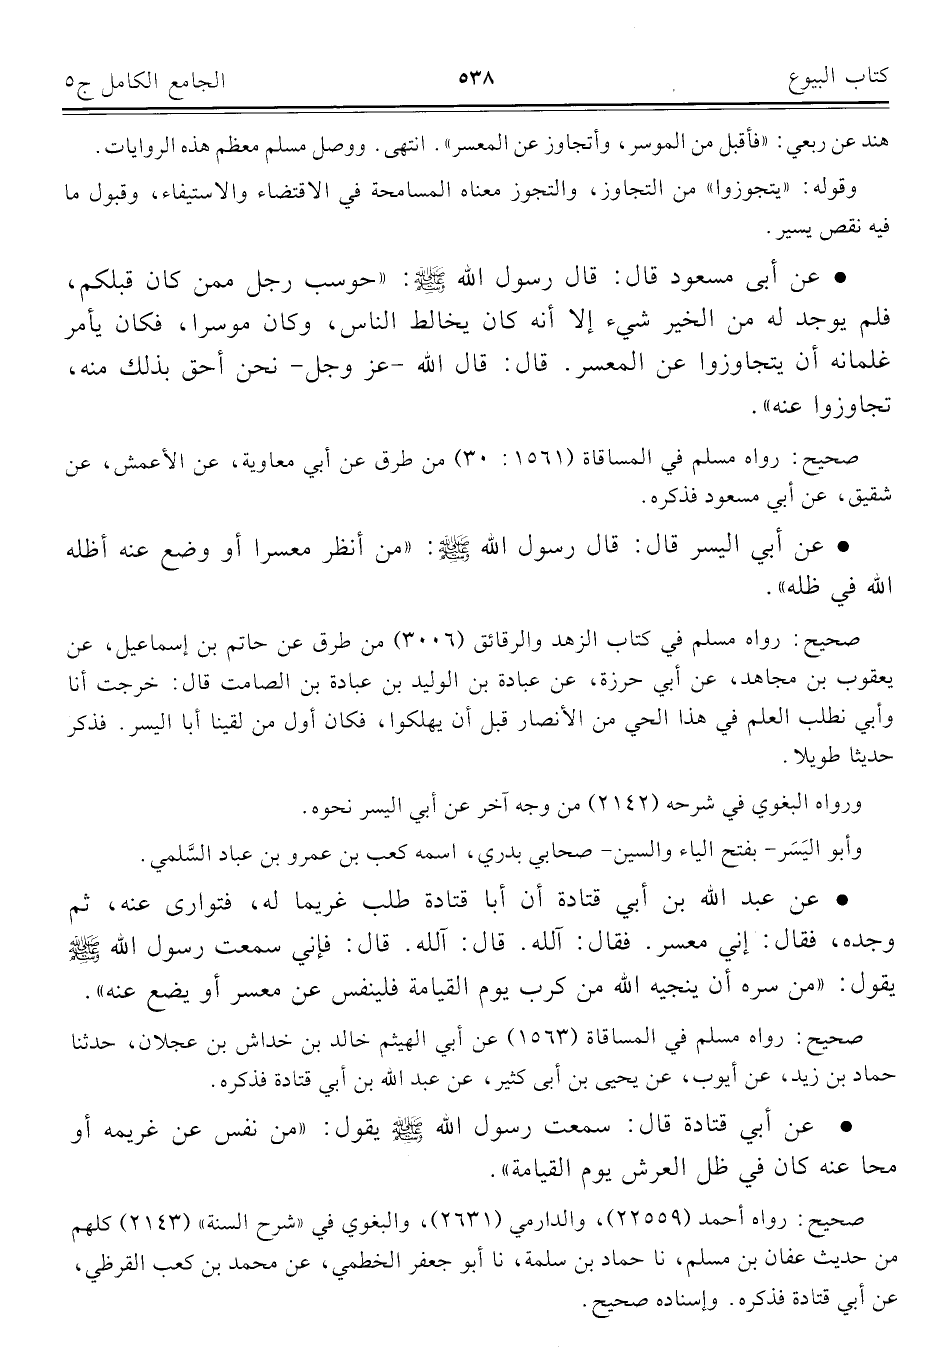 كتاب البيوع ٥٣٨ الجامع الكامل ج٥
هند عن ربعي: «فأقبل من الموسر، وأتجاوز عن المعسر». انتهى. ووصل مسلم معظم هذه الروايات.
وقوله: «يتجوزوا» من التجاوز، والتجوز معناه المسامحة في الاقتضاء والاستيفاء، وقبول ما
فيه نقص يسير.
● عن أبي مسعود قال: قال رسول الله ﷺ: «حوسب رجل ممن كان قبلكم،
فلم يوجد له من الخير شيء إلا أنه كان يخالط الناس، وكان موسرا، فكان يأمر
غلمانه أن يتجاوزوا عن المعسر. قال: قال الله -عز وجل- نحن أحق بذلك منه،
تجاوزوا عنه».
صحيح: رواه مسلم في المساقاة (١٥٦١: ٣٠) من طرق عن أبي معاوية، عن الأعمش، عن
شقيق، عن أبي مسعود فذكره.
● عن أبي اليسر قال: قال رسول الله ﷺ: «من أنظر معسرا أو وضع عنه أظله
الله في ظله».
صحيح: رواه مسلم في كتاب الزهد والرقائق (٣٠٠٦) من طرق عن حاتم بن إسماعيل، عن
يعقوب بن مجاهد، عن أبي حرزة، عن عبادة بن الوليد بن عبادة بن الصامت قال: خرجت أنا
وأبي نطلب العلم في هذا الحي من الأنصار قبل أن يهلكوا، فكان أول من لقينا أبا اليسر. فذكر
حديثا طويلا.
ورواه البغوي في شرحه (٢١٤٢) من وجه آخر عن أبي اليسر نحوه.
وأبو اليَسَر- بفتح الياء والسين- صحابي بدري، اسمه كعب بن عمرو بن عباد السَّلمي.
● عن عبد الله بن أبي قتادة أن أبا قتادة طلب غريما له، فتوارى عنه، ثم
وجده، فقال: إني معسر. فقال: آلله. قال: آلله. قال: فإني سمعت رسول الله ﷺ
يقول: «من سره أن ينجيه الله من كرب يوم القيامة فلينفس عن معسر أو يضع عنه».
صحيح: رواه مسلم في المساقاة (١٥٦٣) عن أبي الهيثم خالد بن خداش بن عجلان، حدثنا
حماد بن زيد، عن أيوب، عن يحيى بن أبى كثير، عن عبد الله بن أبي قتادة فذكره.
● عن أبي قتادة قال: سمعت رسول الله ﷺ يقول: «من نفس عن غريمه أو
محا عنه كان في ظل العرش يوم القيامة».
صحيح: رواه أحمد (٢٢٥٥٩)، والدارمي (٢٦٣١)، والبغوي في «شرح السنة» (٢١٤٣) كلهم
من حديث عفان بن مسلم، نا حماد بن سلمة، نا أبو جعفر الخطمي، عن محمد بن كعب القرظي،
عن أبي قتادة فذكره. وإسناده صحيح.